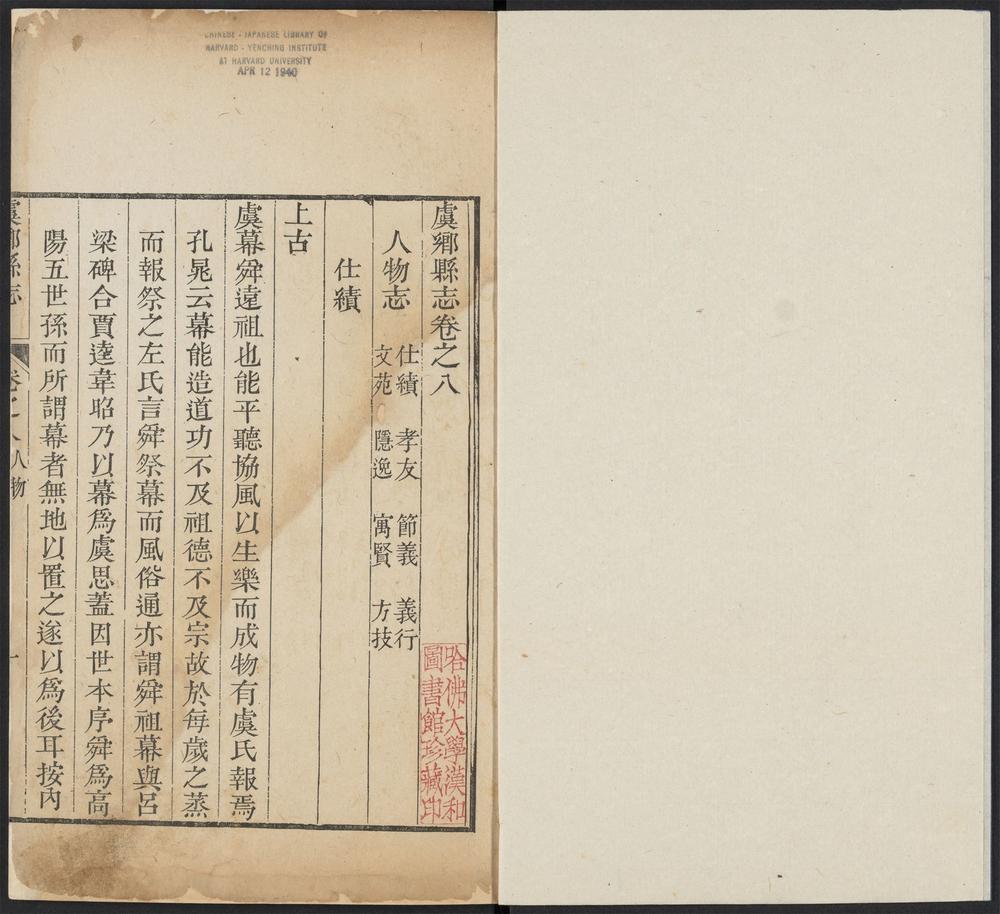 CHINESE - JAPANESE LIBRARY OF
HARVARD - YENCHING INSTITUTE
AT HARVARD UNIVERSITY
APR 12 1940
虞鄉縣志卷之八
哈佛大學漢和
圖書館珍藏印
人物志
仕績 孝友 節義 義行
文苑 隱逸 寓賢 方技
仕績
上古
虞幕舜遠祖也能平聽協風以生樂而成物有虞氏報焉
孔晁云幕能造道功不及祖德不及宗故於每歲之蒸
而報祭之左氏言舜祭幕而風俗通亦謂舜祖幕與呂
梁碑合賈逵韋昭乃以幕爲虞思蓋因世本序舜爲高
陽五世孫而所謂幕者無地以置之遂以爲後耳按內
虞鄉縣志
卷之八人物
一